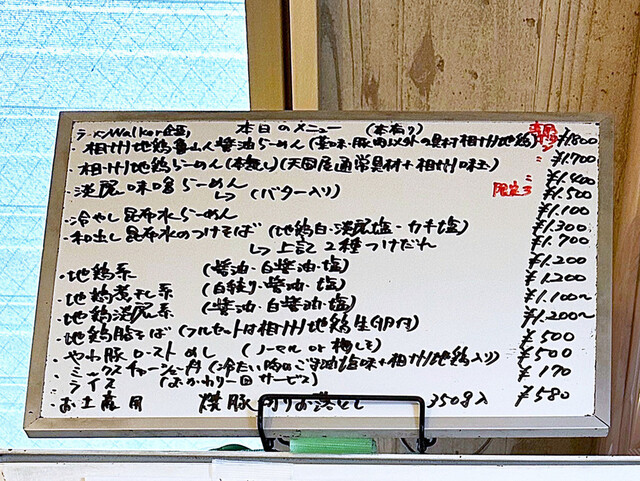 ラーメンWalker企画 本日のメニュー (本有り)
・相州地鶏 醤油らーめん (薬味・豚肉以外の具材相州地鶏) ¥1.800
・相州地鶏らーめん(本無し)(天国屋通常具材+相州 ) 〃 ¥1.700
・淡麗味噌らーめん 〃 ¥1.400
↳ (バター入り) 限定3 ¥1.500
・冷やし昆布水らーめん ¥1.100
・和出し昆布水のつけそば (地鶏白・淡麗塩・カキ塩) ¥1.300
↳上記2種つけだれ ¥1.700
・地鶏系 (醤油・白醤油・塩) ¥1.200
・地鶏煮干し系 (白絞り・醤油・塩) ¥1.200
・地鶏淡麗系 (醤油・白醤油・塩) ¥1.100〜
・地鶏脂そば (フルセットは相州地鶏生卵付) ¥1.200〜
・やわ豚ローストめし (ノーマル or 梅しそ) ¥500
・ミックスチャーシュー丼 (冷たい胸のごま油塩味+相州地鶏入り) ¥500
・ライス (おかわり一回サービス) ¥170
・お土産用 焼豚切りお落とし 350g入 ¥580